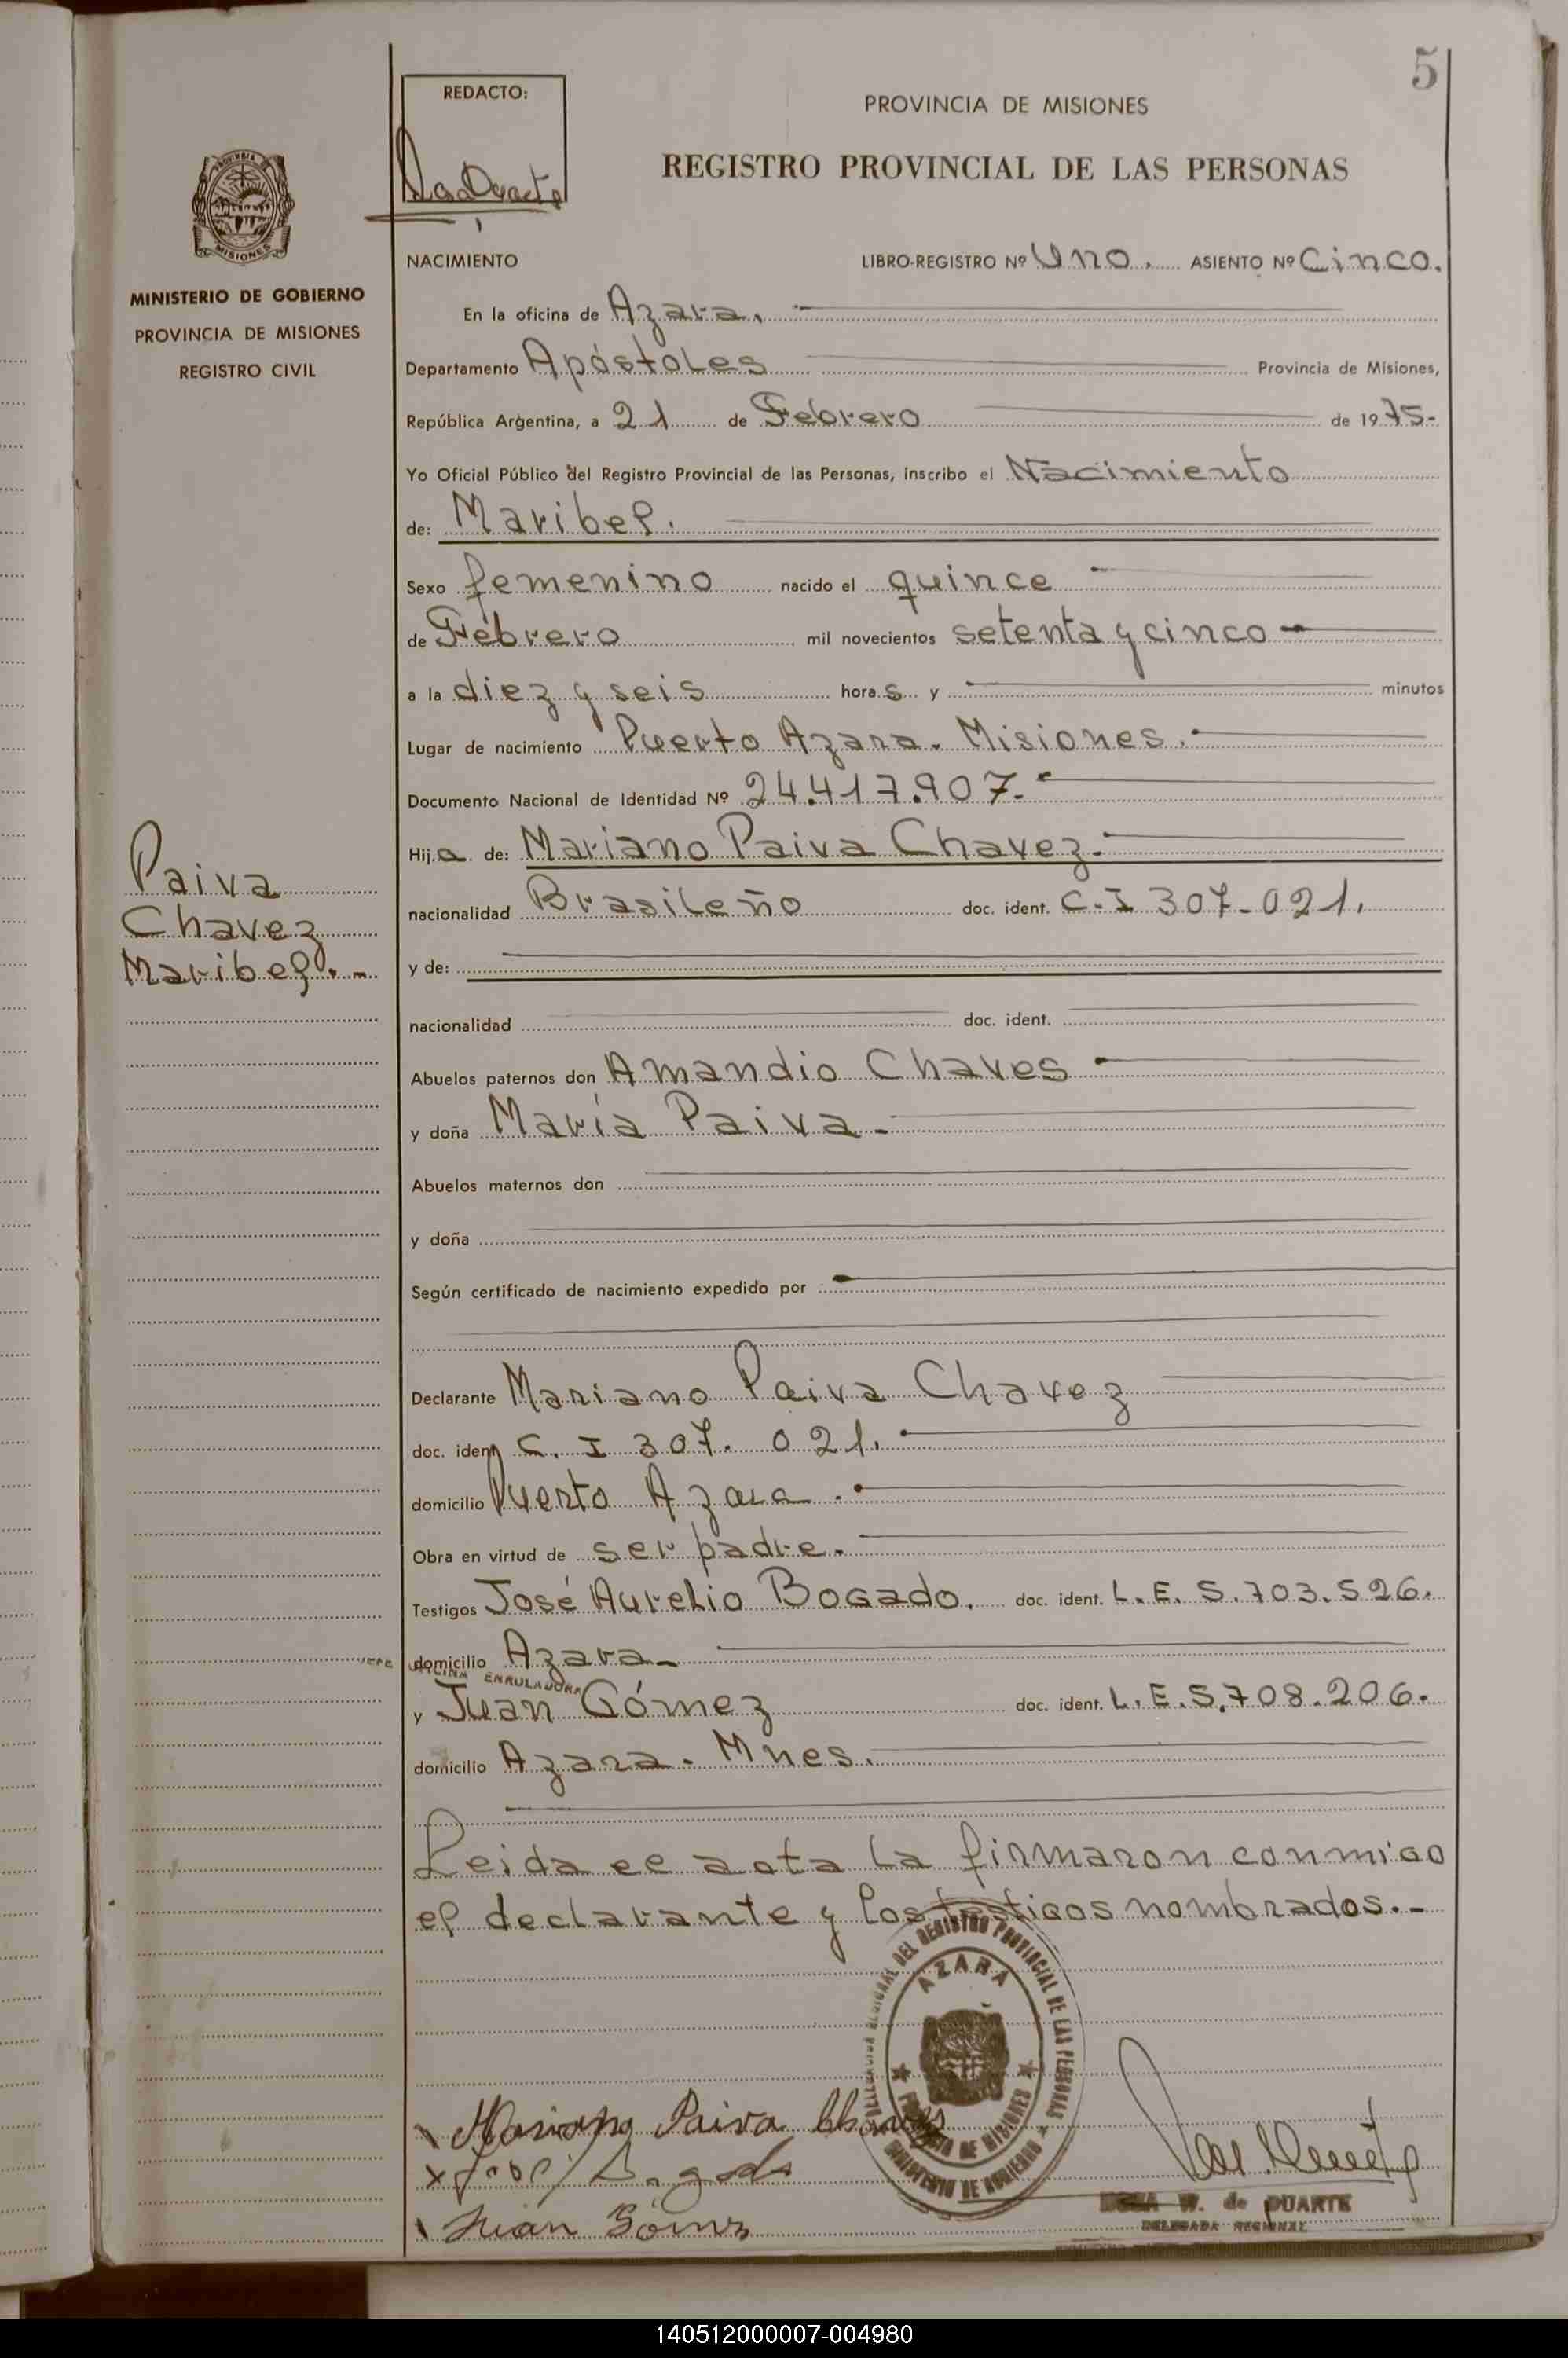 5
REDACTO:
PROVINCIA DE MISIONES
REGISTRO PROVINCIAL DE LAS PERSONAS
PROVINCIA DE
MISIONES
MINISTERIO DE GOBIERNO
PROVINCIA DE MISIONES
REGISTRO CIVIL
NACIMIENTO LIBRO-REGISTRO Nº Uno. ASIENTO Nº Cinco.
En la oficina de Azara.
Departamento Apóstoles Provincia de Misiones,
República Argentina, a 21 de Febrero de 1975-
Yo Oficial Público del Registro Provincial de las Personas, inscribo el Nacimiento
de: Maribel.
Sexo femenino nacido el quince
de Febrero mil novecientos setenta y cinco
a la diez y seis horas y minutos
Lugar de nacimiento Puerto Azara. Misiones.
Documento Nacional de Identidad Nº 24.417.907.-
Hija de: Mariano Paiva Chavez.
Paiva
Chavez
Maribel.-
nacionalidad Brasileño doc. ident. C.I 307-021.
y de:
nacionalidad doc. ident.
Abuelos paternos don Amandio Chaves
y doña María Paiva.
Abuelos maternos don
y doña
Según certificado de nacimiento expedido por
Declarante Mariano Paiva Chavez
doc. ident C. I 307. 021.
domicilio Puerto Azara.
Obra en virtud de ser padre.
Testigos José Aurelio Bogado. doc. ident. L.E. 5.703.526.
domicilio Azara-
JEFE OFICINA ENROLADORA
y Juan Gómez doc. ident. L.E.5.708.206.
domicilio Azara. Mnes.
Leida el acta la firmaron conmigo
el declarante y los testigos nombrados.-
DEL REGISTRO PROVINCIAL DE LAS PERSONAS
AZARA
PROVINCIA DE MISIONES
MINISTERIO DE GOBIERNO
Mariano Paiva Chaves
Juan Gómez
W. de DUARTE
DELEGADA REGIONAL
140512000007-004980